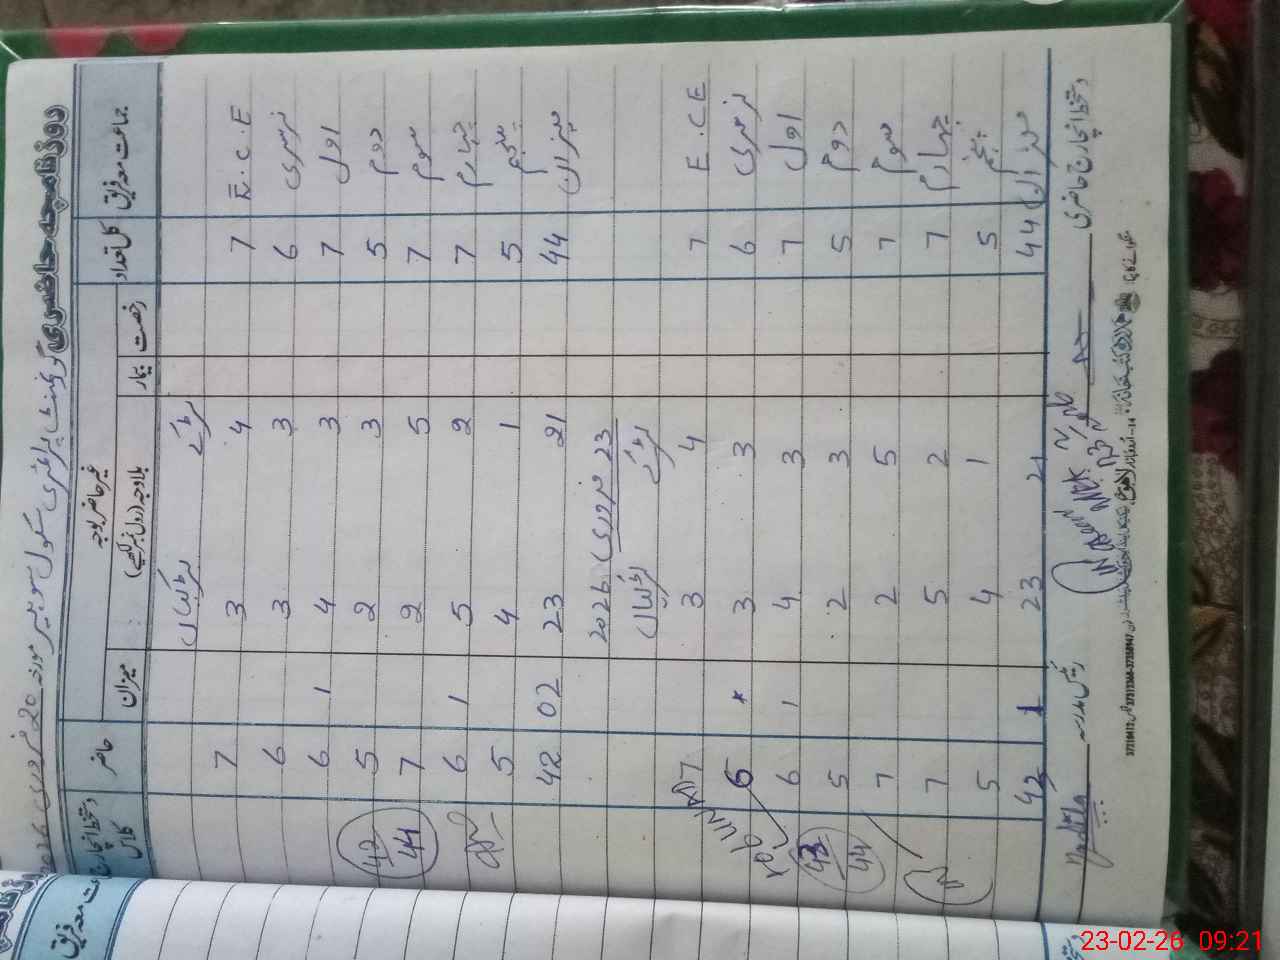 روزنامچہ حاضری گورنمنٹ پرائمری سکول مورخہ 20 فروری 2026
جماعت معہ فریق کل تعداد غیر حاضر بوجہ حاضر دستخط انچارج کلاس
رخصت بیمار بلاوجہ (رول نمبر لکھیے) میزان
لڑکے لڑکیاں
E.C.E 7 4 3 7
نرسری 6 3 3 6
اول 7 3 4 1 6
دوم 5 3 2 5
سوم 7 5 2 7
چہارم 7 2 5 1 6
پنجم 5 1 4 5
میزان 44 21 23 02 42
42
44
23 فروری 2026
لڑکے لڑکیاں
E.CE 7 4 3 7
نرسری 6 3 3
اول 7 3 4 1 6
دوم 5 3 2 5
سوم 7 5 2 7
چہارم 7 2 5 7
پنجم 5 1 4 5
میزان 44 21 23 1
43
44
دستخط انچارج حاضری
رئیس مدرسہ
23-02-26 09:21